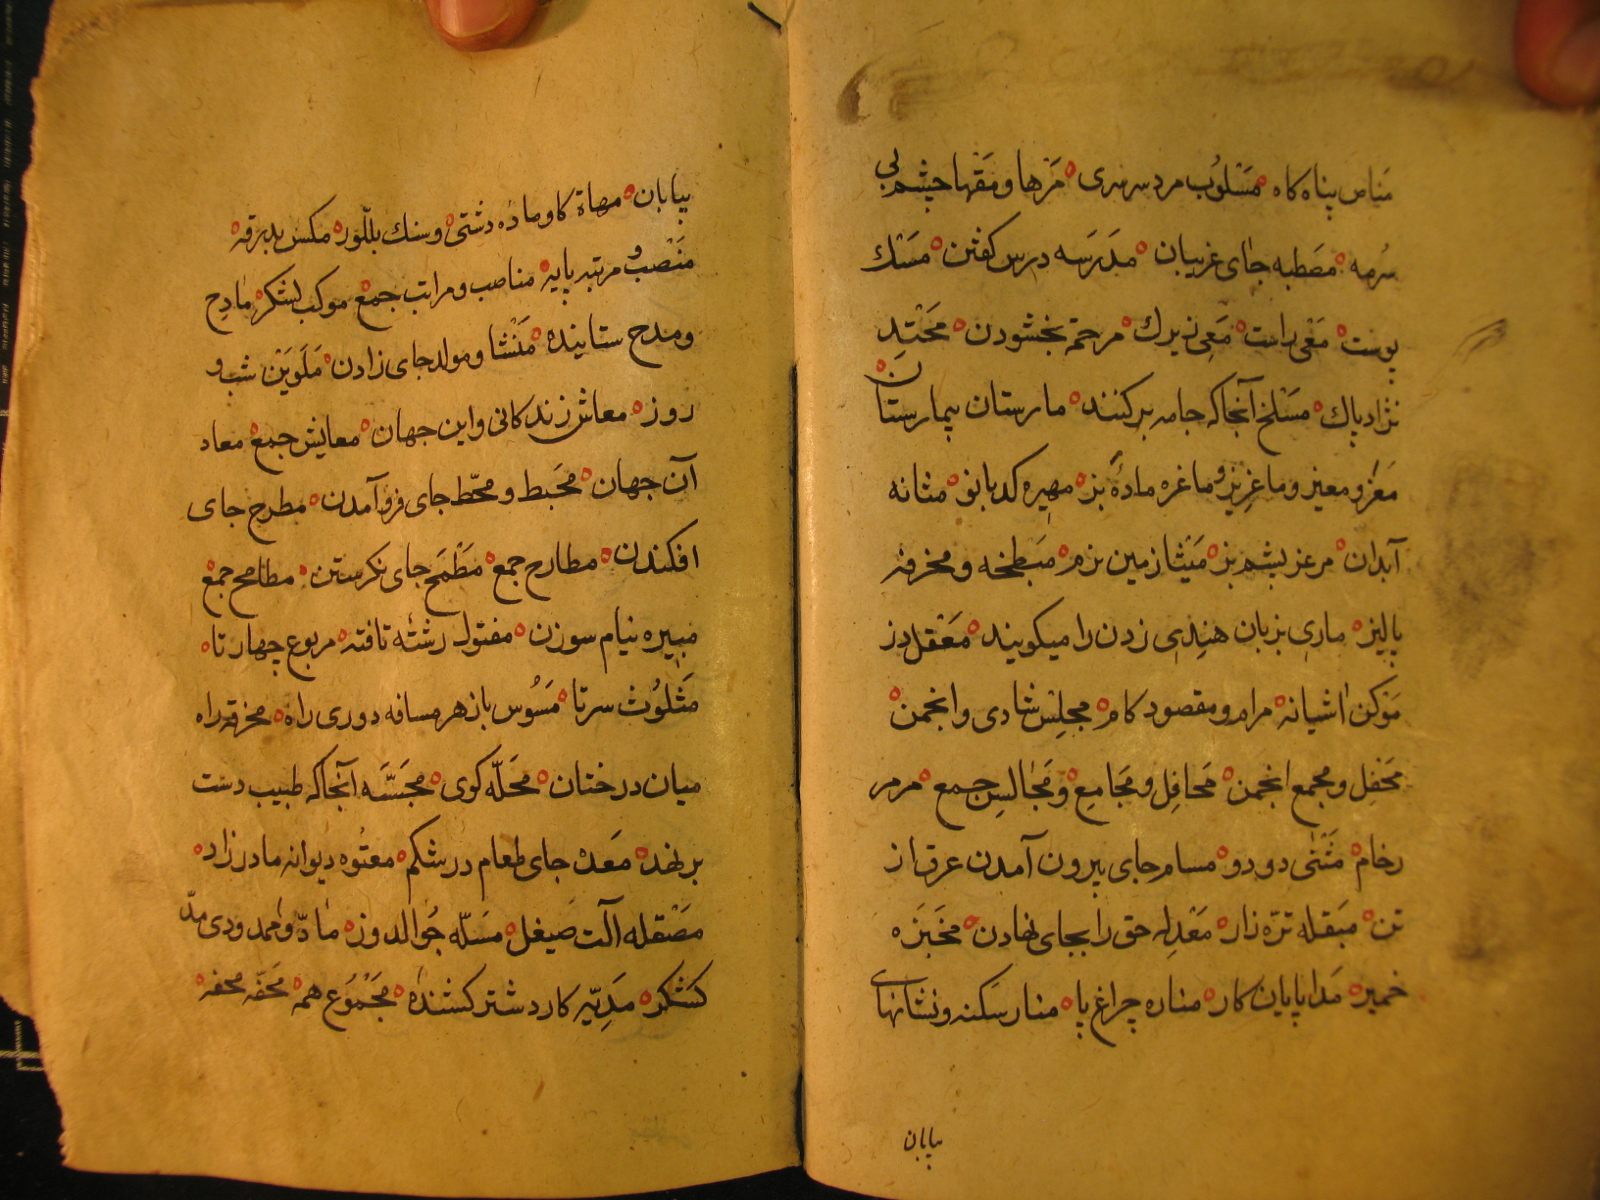 مَناص پناه کاه مَسْلوُب مرد سرسری مَرْها و مَقْها چشم بی
سُرمه مَصْطبه جای غریبان مَدرَسَه درس کفتن مَسْك
پوست مَغْی راست مَعِی زیرك مرحمَة بخشودن مَحْتِد
نژاد پاك مَسْلخ آنجا که جامه برکنند مارستان بیمارستان
مَعْز و معیز و ماعِزیز و ماعزه مادهٔ بز مهِیره کدبانو مثانه
آبدان مرعز پشم بز مَیْثا زمین نرم مَبطخه و مخرفه
پالیز ماری بزبان هندی زدن را میکویند مَعْقل دز
مَوکن اشیانه مرام و مقصود کام مجلِسْ شادی و انجمن
مَحْفِل و مجمع انجمن مَحافِل و مَجَامِع و مَجَالِس جمع مرمر
رخام مَثْنٰی دو دو مسام جای بیرون آمدن عرق از
تن مَبقله ترّه زار مَعْدِله حق را بجای نهادن مَخبَزه
خمیر مَدا پایان کار مناره چراغ پا منار سکنه و نشانهای
بیابان
بیابان مهاة کاو ماده دشتی و سنك بلّور مکس بدبرقه
مَنْصب و مرتبه پایه مناصب و مراتب جمع موکب لشکر مادِح
و مدح ستاینده مَنْشا و مولد جای زادن مَلَوَیْن شب و
روز معاش زندکانی و این جهان معایش جمع معاد
آن جهان مَحَبط و محّط جای فروآمدن مطرح جای
افکندن مطارح جمع مَطْمَح جای نکرستن مطامح جمع
مبیره نیام سوزن مفتول رشته تافته مربوع چهارتا
مَثلوُث سرتا مَسُوس باز هر مسافه دوری راه مخرقه راه
میان درختان مَحَلّه کوی مَجَسَّه آنجا که طبیب دست
برنهد مَعَدة جای طعام در شکم معتُوه دیوانه مادرزاد
مَصْقله آلت صیغل مَسَلّه جُوالدوز مادّ و ممدودی مدّ
کشکر مَدِیّه کارد شتر کشنده مَجْمُوَع همه مَحَفّه محفه